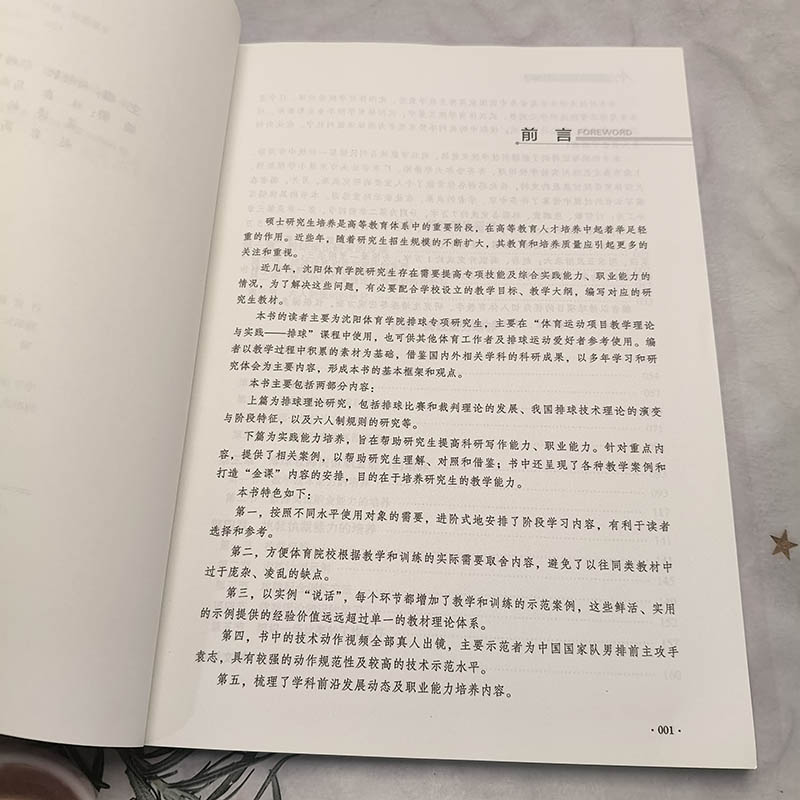 前 言 FOREWORD
硕士研究生培养是高等教育体系中的重要阶段，在高等教育人才培养中起着举足轻
重的作用。近些年，随着研究生招生规模的不断扩大，其教育和培养质量应引起更多的
关注和重视。
近几年，沈阳体育学院研究生存在需要提高专项技能及综合实践能力、职业能力的
情况，为了解决这些问题，有必要配合学校设立的教学目标、教学大纲，编写对应的研
究生教材。
本书的读者主要为沈阳体育学院排球专项研究生，主要在“体育运动项目教学理论
与实践——排球”课程中使用，也可供其他体育工作者及排球运动爱好者参考使用。编
者以教学过程中积累的素材为基础，借鉴国内外相关学科的科研成果，以多年学习和研
究体会为主要内容，形成本书的基本框架和观点。
本书主要包括两部分内容：
上篇为排球理论研究，包括排球比赛和裁判理论的发展、我国排球技术理论的演变
与阶段特征，以及六人制规则的研究等。
下篇为实践能力培养，旨在帮助研究生提高科研写作能力、职业能力。针对重点内
容，提供了相关案例，以帮助研究生理解、对照和借鉴；书中还呈现了各种教学案例和
打造“金课”内容的安排，目的在于培养研究生的教学能力。
本书特色如下：
第一，按照不同水平使用对象的需要，进阶式地安排了阶段学习内容，有利于读者
选择和参考。
第二，方便体育院校根据教学和训练的实际需要取舍内容，避免了以往同类教材中
过于庞杂、凌乱的缺点。
第三，以实例“说话”，每个环节都增加了教学和训练的示范案例，这些鲜活、实用
的示例提供的经验价值远远超过单一的教材理论体系。
第四，书中的技术动作视频全部真人出镜，主要示范者为中国国家队男排前主攻手
袁志，具有较强的动作规范性及较高的技术示范水平。
第五，梳理了学科前沿发展动态及职业能力培养内容。
· 001 ·